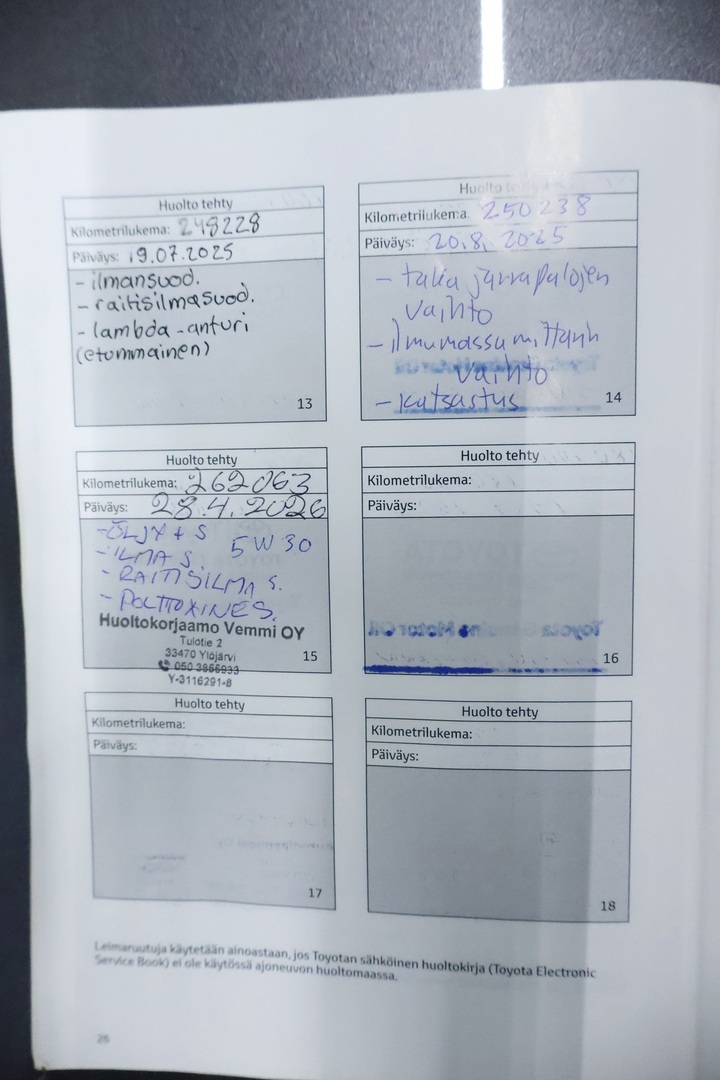 Huolto tehty
Kilometrilukema: 248228
Päiväys: 19.07.2025
- ilmansuod.
- raitisilmasuod.
- lambda-anturi
(etummainen)
13
Huolto tehty
Kilometrilukema: 250238
Päiväys: 20.8. 2025
- taka jarrupalojen
vaihto
- ilmamassamittarin
vaihto
- katsastus
14
Huolto tehty
Kilometrilukema: 262063
Päiväys: 28.4.2026
- ÖLJY + S 5W30
- ILMA S.
- RAITISILMA S.
- POLTTOAINES.
Huoltokorjaamo Vemmi OY
Tulotie 2
33470 Ylöjärvi
050 3866933
Y-3116291-8
15
Huolto tehty
Kilometrilukema:
Päiväys:
Toyota Genuine Motor Oil
16
Huolto tehty
Kilometrilukema:
Päiväys:
17
Huolto tehty
Kilometrilukema:
Päiväys:
18
Leimaruutuja käytetään ainoastaan, jos Toyotan sähköinen huoltokirja (Toyota Electronic
Service Book) ei ole käytössä ajoneuvon huoltomaassa.
26